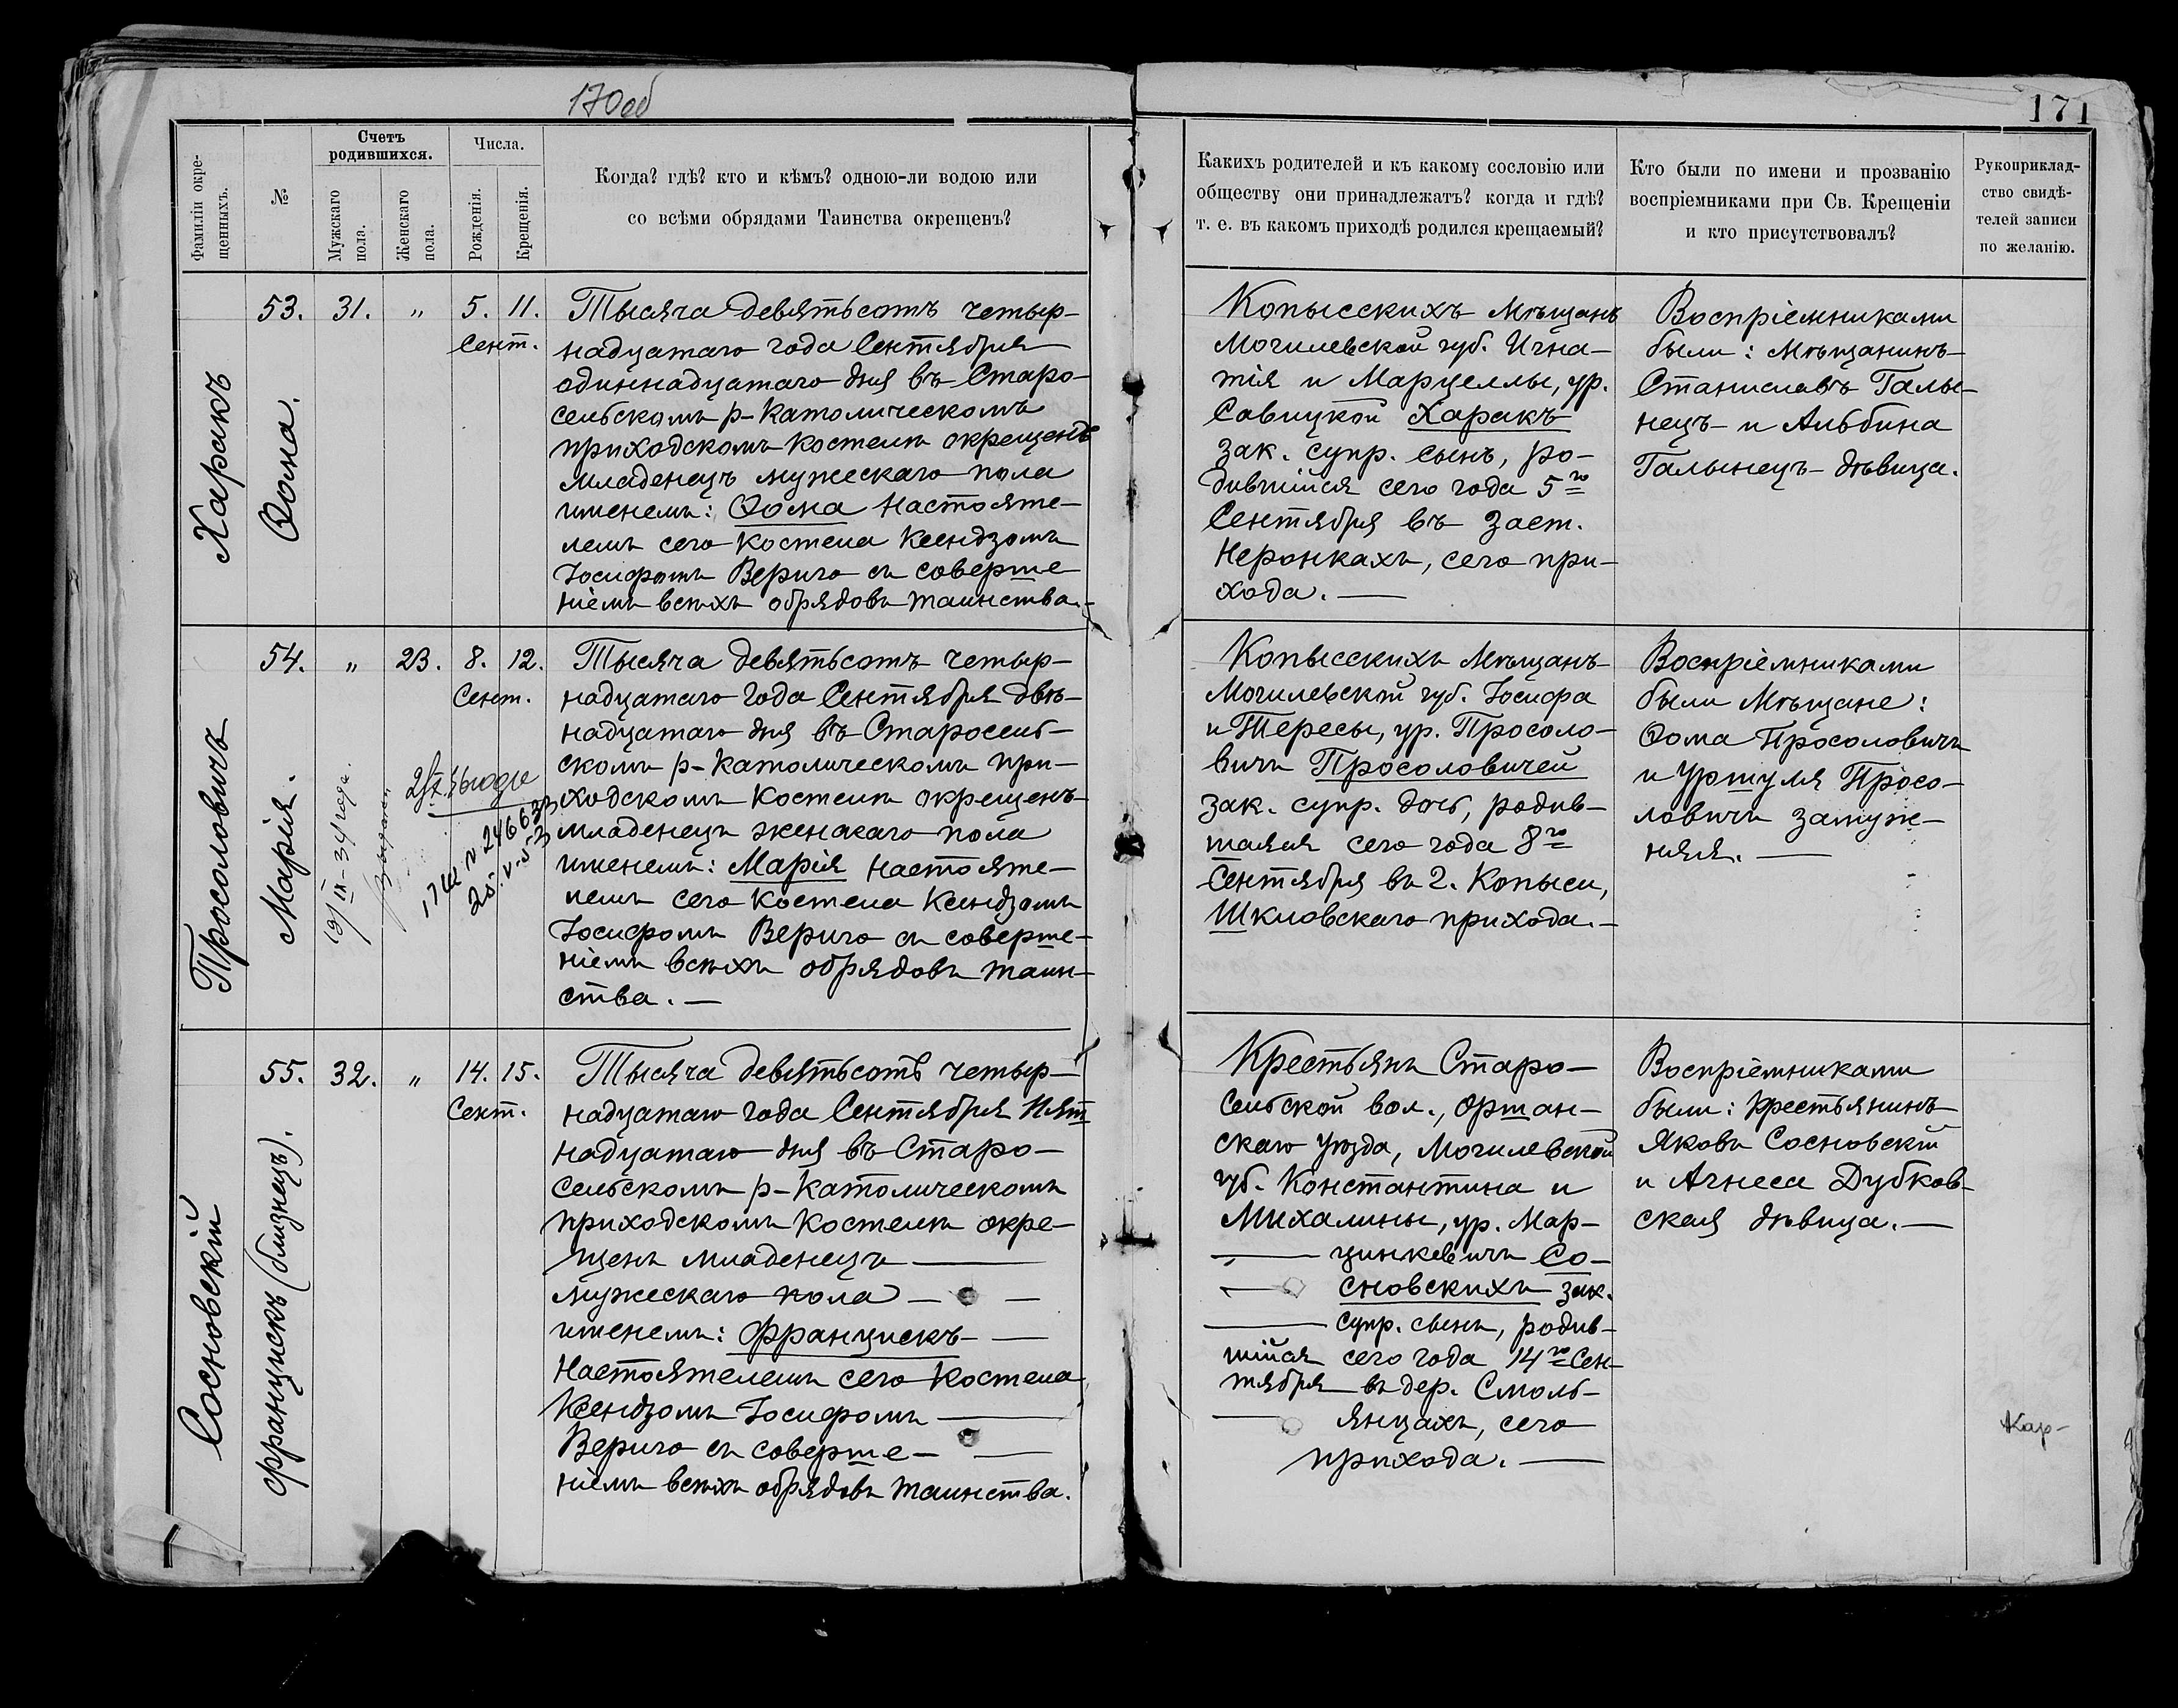 170об
171
Фамиліи окре-
щенныхъ.
№
Счетъ
родившихся.
Мужскаго
пола.
Женскаго
пола.
Числа.
Рожденія.
Крещенія.
Когда? гдѣ? кто и кѣмъ? одною-ли водою или
со всѣми обрядами Таинства окрещенъ?
Какихъ родителей и къ какому сословію или
обществу они принадлежатъ? когда и гдѣ?
т. е. въ какомъ приходѣ родился крещаемый?
Кто были по имени и прозванію
воспріемниками при Св. Крещеніи
и кто присутствовалъ?
Рукоприклад-
ство свидѣ-
телей записи
по желанію.
Харакъ
Ѳома.
53. 31. " 5. 11.
Сент.
Тысяча девятьсотъ четыр-
надцатаго года Сентября
одиннадцатаго дня въ Старо-
сельскомъ р-католическомъ
приходскомъ костелѣ окрещенъ
младенецъ мужескаго пола
именемъ: Ѳома настояте-
лемъ сего костела Ксендзомъ
Іосифомъ Верыго съ соверше
ніемъ всѣхъ обрядовъ таинства.-
Копысскихъ Мѣщанъ
Могилевской губ. Игна-
тія и Марцеллы, ур.
Савицкой Харакъ
зак. супр. сынъ, ро-
дившійся сего года 5го
Сентября въ заст.
Неронкахъ, сего при-
хода. —
Воспріемниками
были: мѣщанинъ
Станиславъ Галы-
нецъ и Альбина
Галынецъ дѣвица.
Просоловичъ
Марія.
54. " 23. 8. 12.
Сент.
19/IX-34 года.
Тысяча девятьсотъ четыр-
надцатаго года Сентября двѣ-
надцатаго дня въ Старосель-
скомъ р-католическомъ при-
ходскомъ костелѣ окрещенъ
младенецъ женскаго пола
именемъ: Марія настояте-
лемъ сего костела Ксендзомъ
Іосифомъ Верыго съ соверше-
ніемъ всѣхъ обрядовъ таин-
ства. —
Копысскихъ Мѣщанъ
Могилевской губ. Іосифа
и Тересы, ур. Просоло-
вичъ Просоловичей
зак. супр. дочь, родив-
шаяся сего года 8го
Сентября въ г. Копыси,
Шкловскаго прихода.-
Воспріемниками
были Мѣщане:
Ѳома Просоловичъ
и Уршуля Просо-
ловичъ замуж-
няя. —
Сосновскій
Францискъ (близнецъ).
55. 32. " 14. 15.
Сент.
Тысяча девятьсотъ четыр-
надцатаго года Сентября Пят
надцатаго дня въ Старо-
сельскомъ р-католическомъ
приходскомъ костелѣ окре-
щенъ младенецъ —
мужескаго пола — —
именемъ: Францискъ —
Настоятелемъ сего костела
Ксендзомъ Іосифомъ —
Верыго съ соверше- —
ніемъ всѣхъ обрядовъ таинства.
Крестьянъ Старо-
сельской вол., Оршан-
скаго уѣзда, Могилевской
губ. Константина и
Михалины, ур. Мар-
— цинкевичъ Со-
— сновскихъ зак.
— супр. сынъ, родив-
шійся сего года 14го Сен-
тября въ дер. Смоль-
— янцахъ, сего
прихода. —
Воспріемниками
были: крестьянинъ
Яковъ Сосновскій
и Агнеса Дубков-
ская дѣвица. —
Кар-